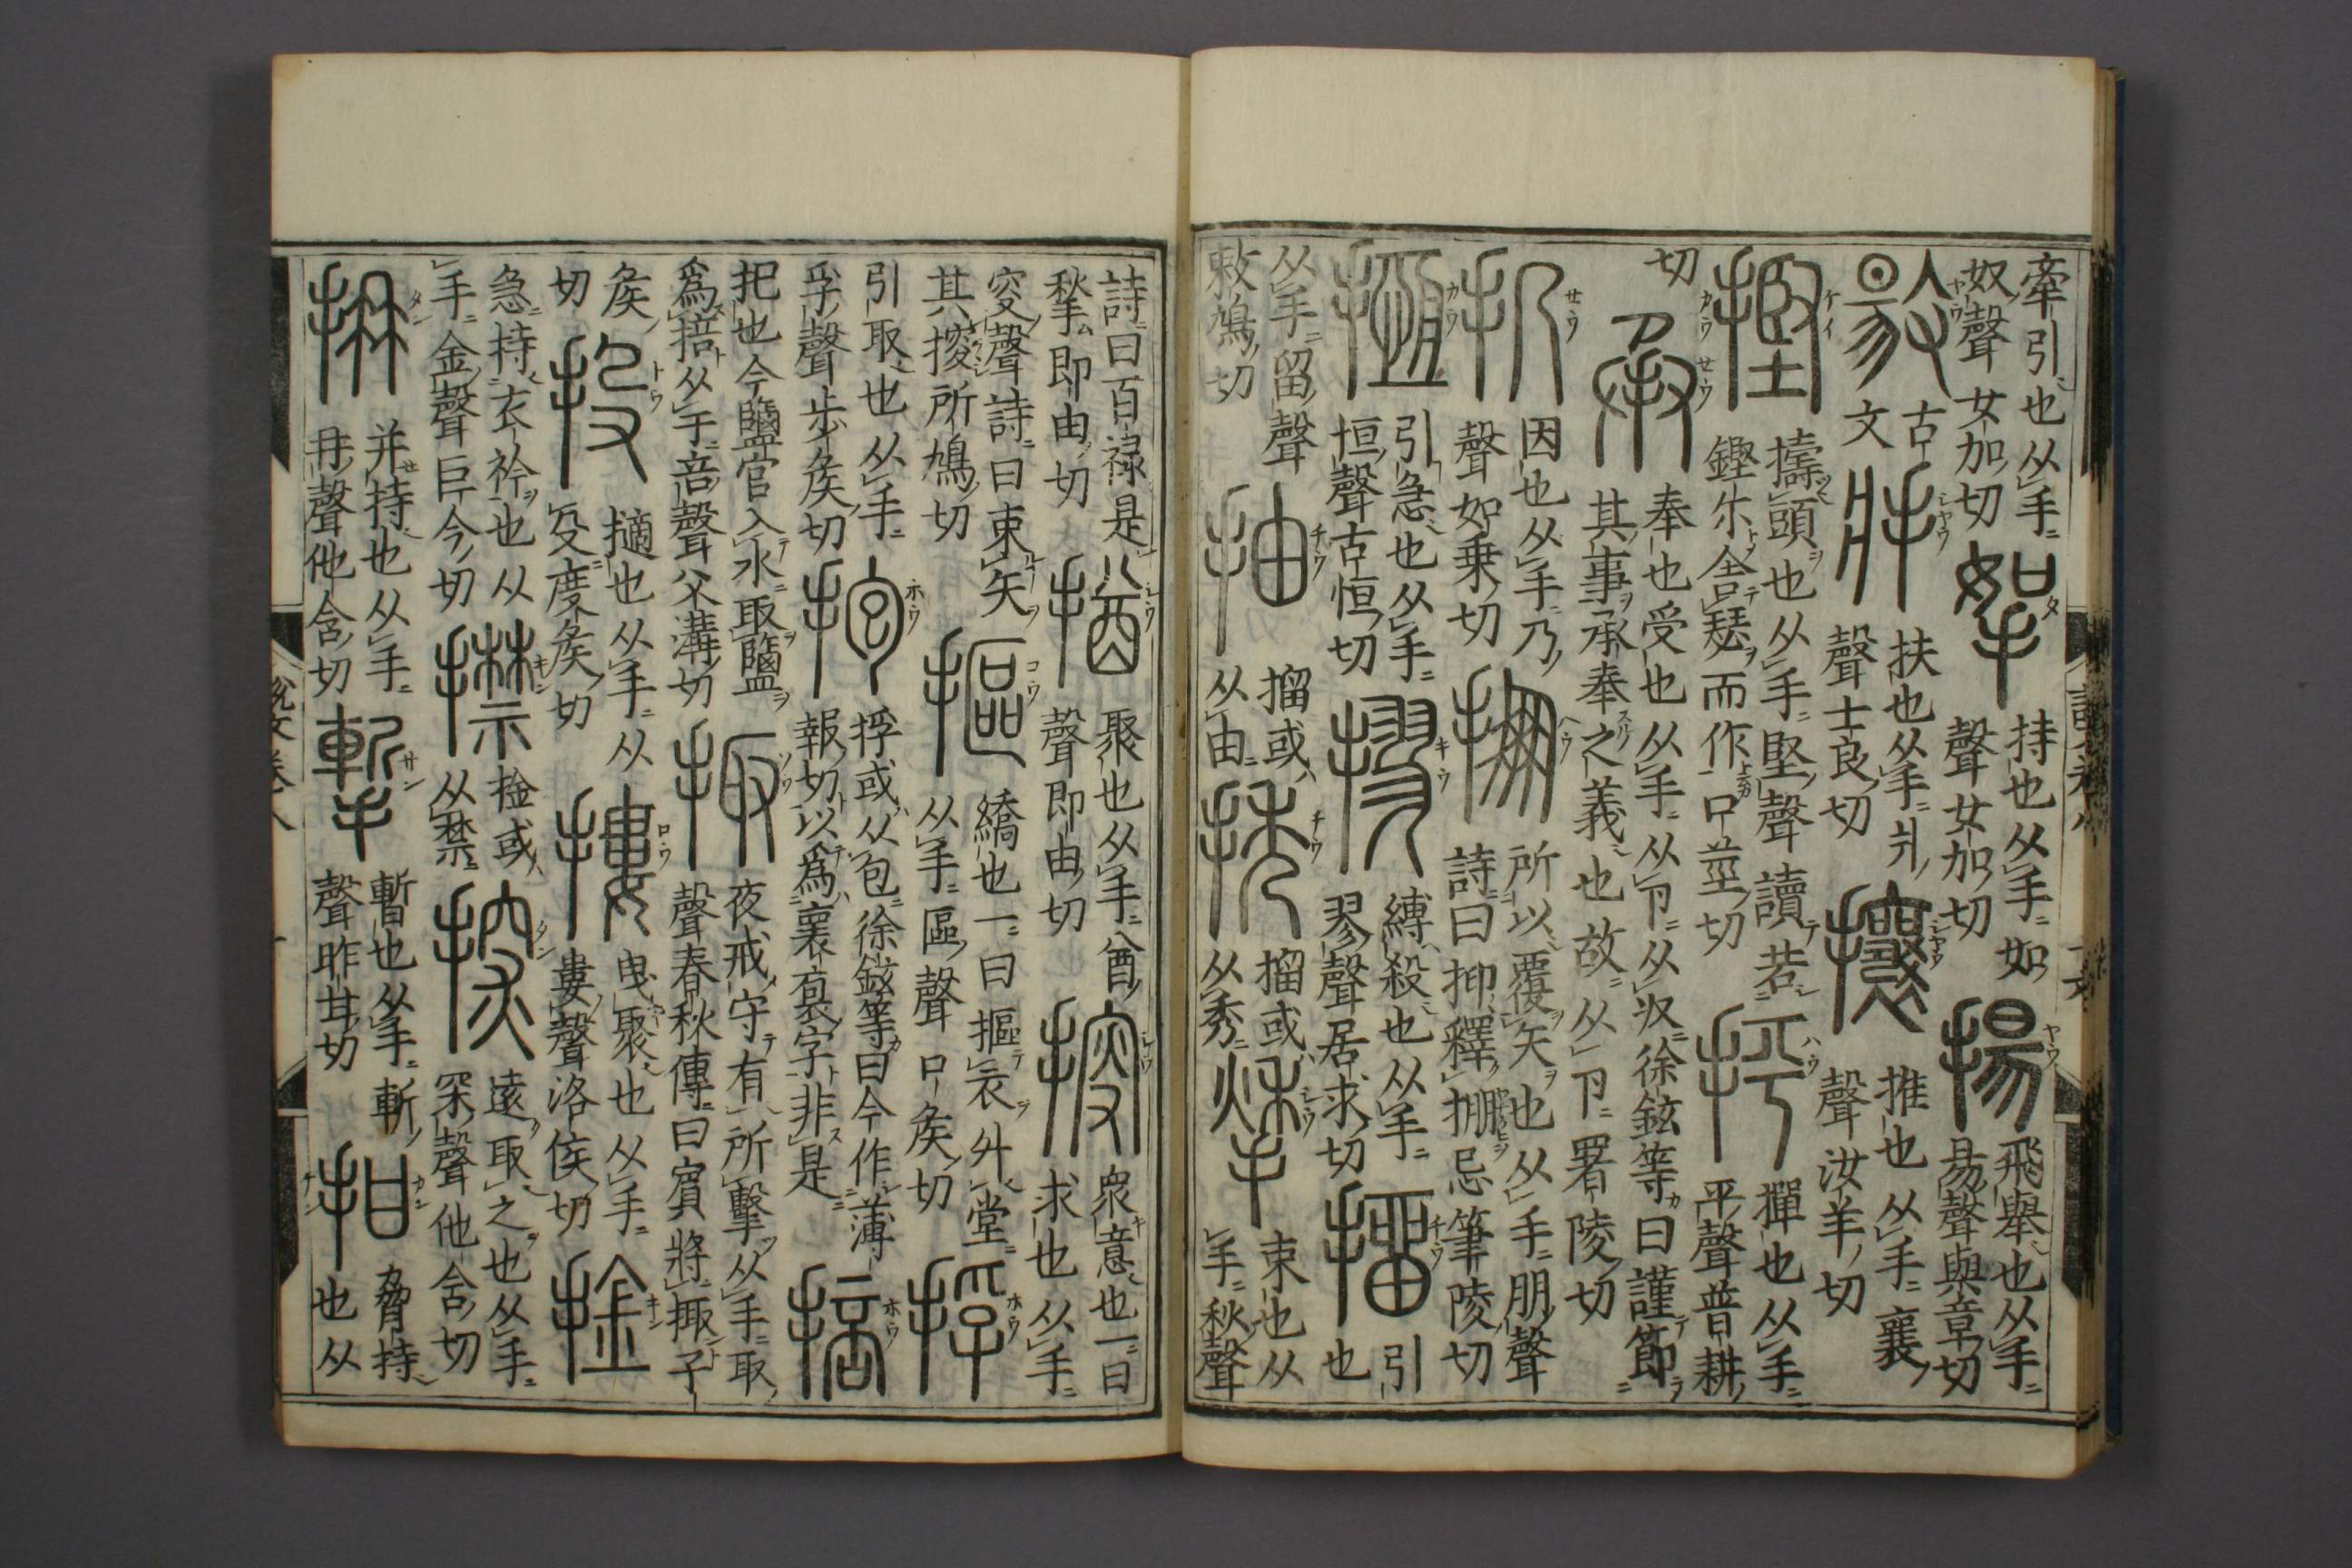 牽引也从手奴聲女加切挐持也从手如聲女加切揚飛舉也从手昜聲與章切
敭古文𤕭扶也从手爿聲士良切攘推也从手襄聲汝羊切
㩋擣頭也从手堅聲讀若鏗尒舍瑟而作口莖切抨撣也从手平聲普耕
切承奉也受也从手从卪从収徐鉉等曰謹節其事承奉之義也故从卪署陵切
扔因也从手乃聲如乗切掤所以覆矢也从手朋聲詩曰抑釋掤忌筆陵切
搄引急也从手恒聲古恒切摎縛殺也从手翏聲居求切㩅引也
从手留聲敕鳩切抽㩅或从由𢭆㩅或从秀揫束也从手秋聲
詩曰百禄是揫即由切揂聚也从手酋聲即由切㨶衆意也一曰求也从手
叜聲詩曰束矢其㨶所鳩切摳繑也一曰摳衣升堂从手區聲口矦切捊
引取也从手孚聲步矦切抱捊或从包徐鉉等曰今作薄報切以爲襃袌字非是掊
把也今鹽官入水取鹽爲掊从手咅聲父溝切掫夜戒守有所擊从手取聲春秋傳曰賓將掫子
矦切投擿也从手从殳度矦切摟曳聚也从手婁聲洛侯切捦
急持衣䘳也从手金聲巨今切㩒捦或从禁探遠取之也从手罙聲他含切
抩并持也从手冄聲他含切摲暫也从手斬聲昨甘切拑脅持也从
説文卷八